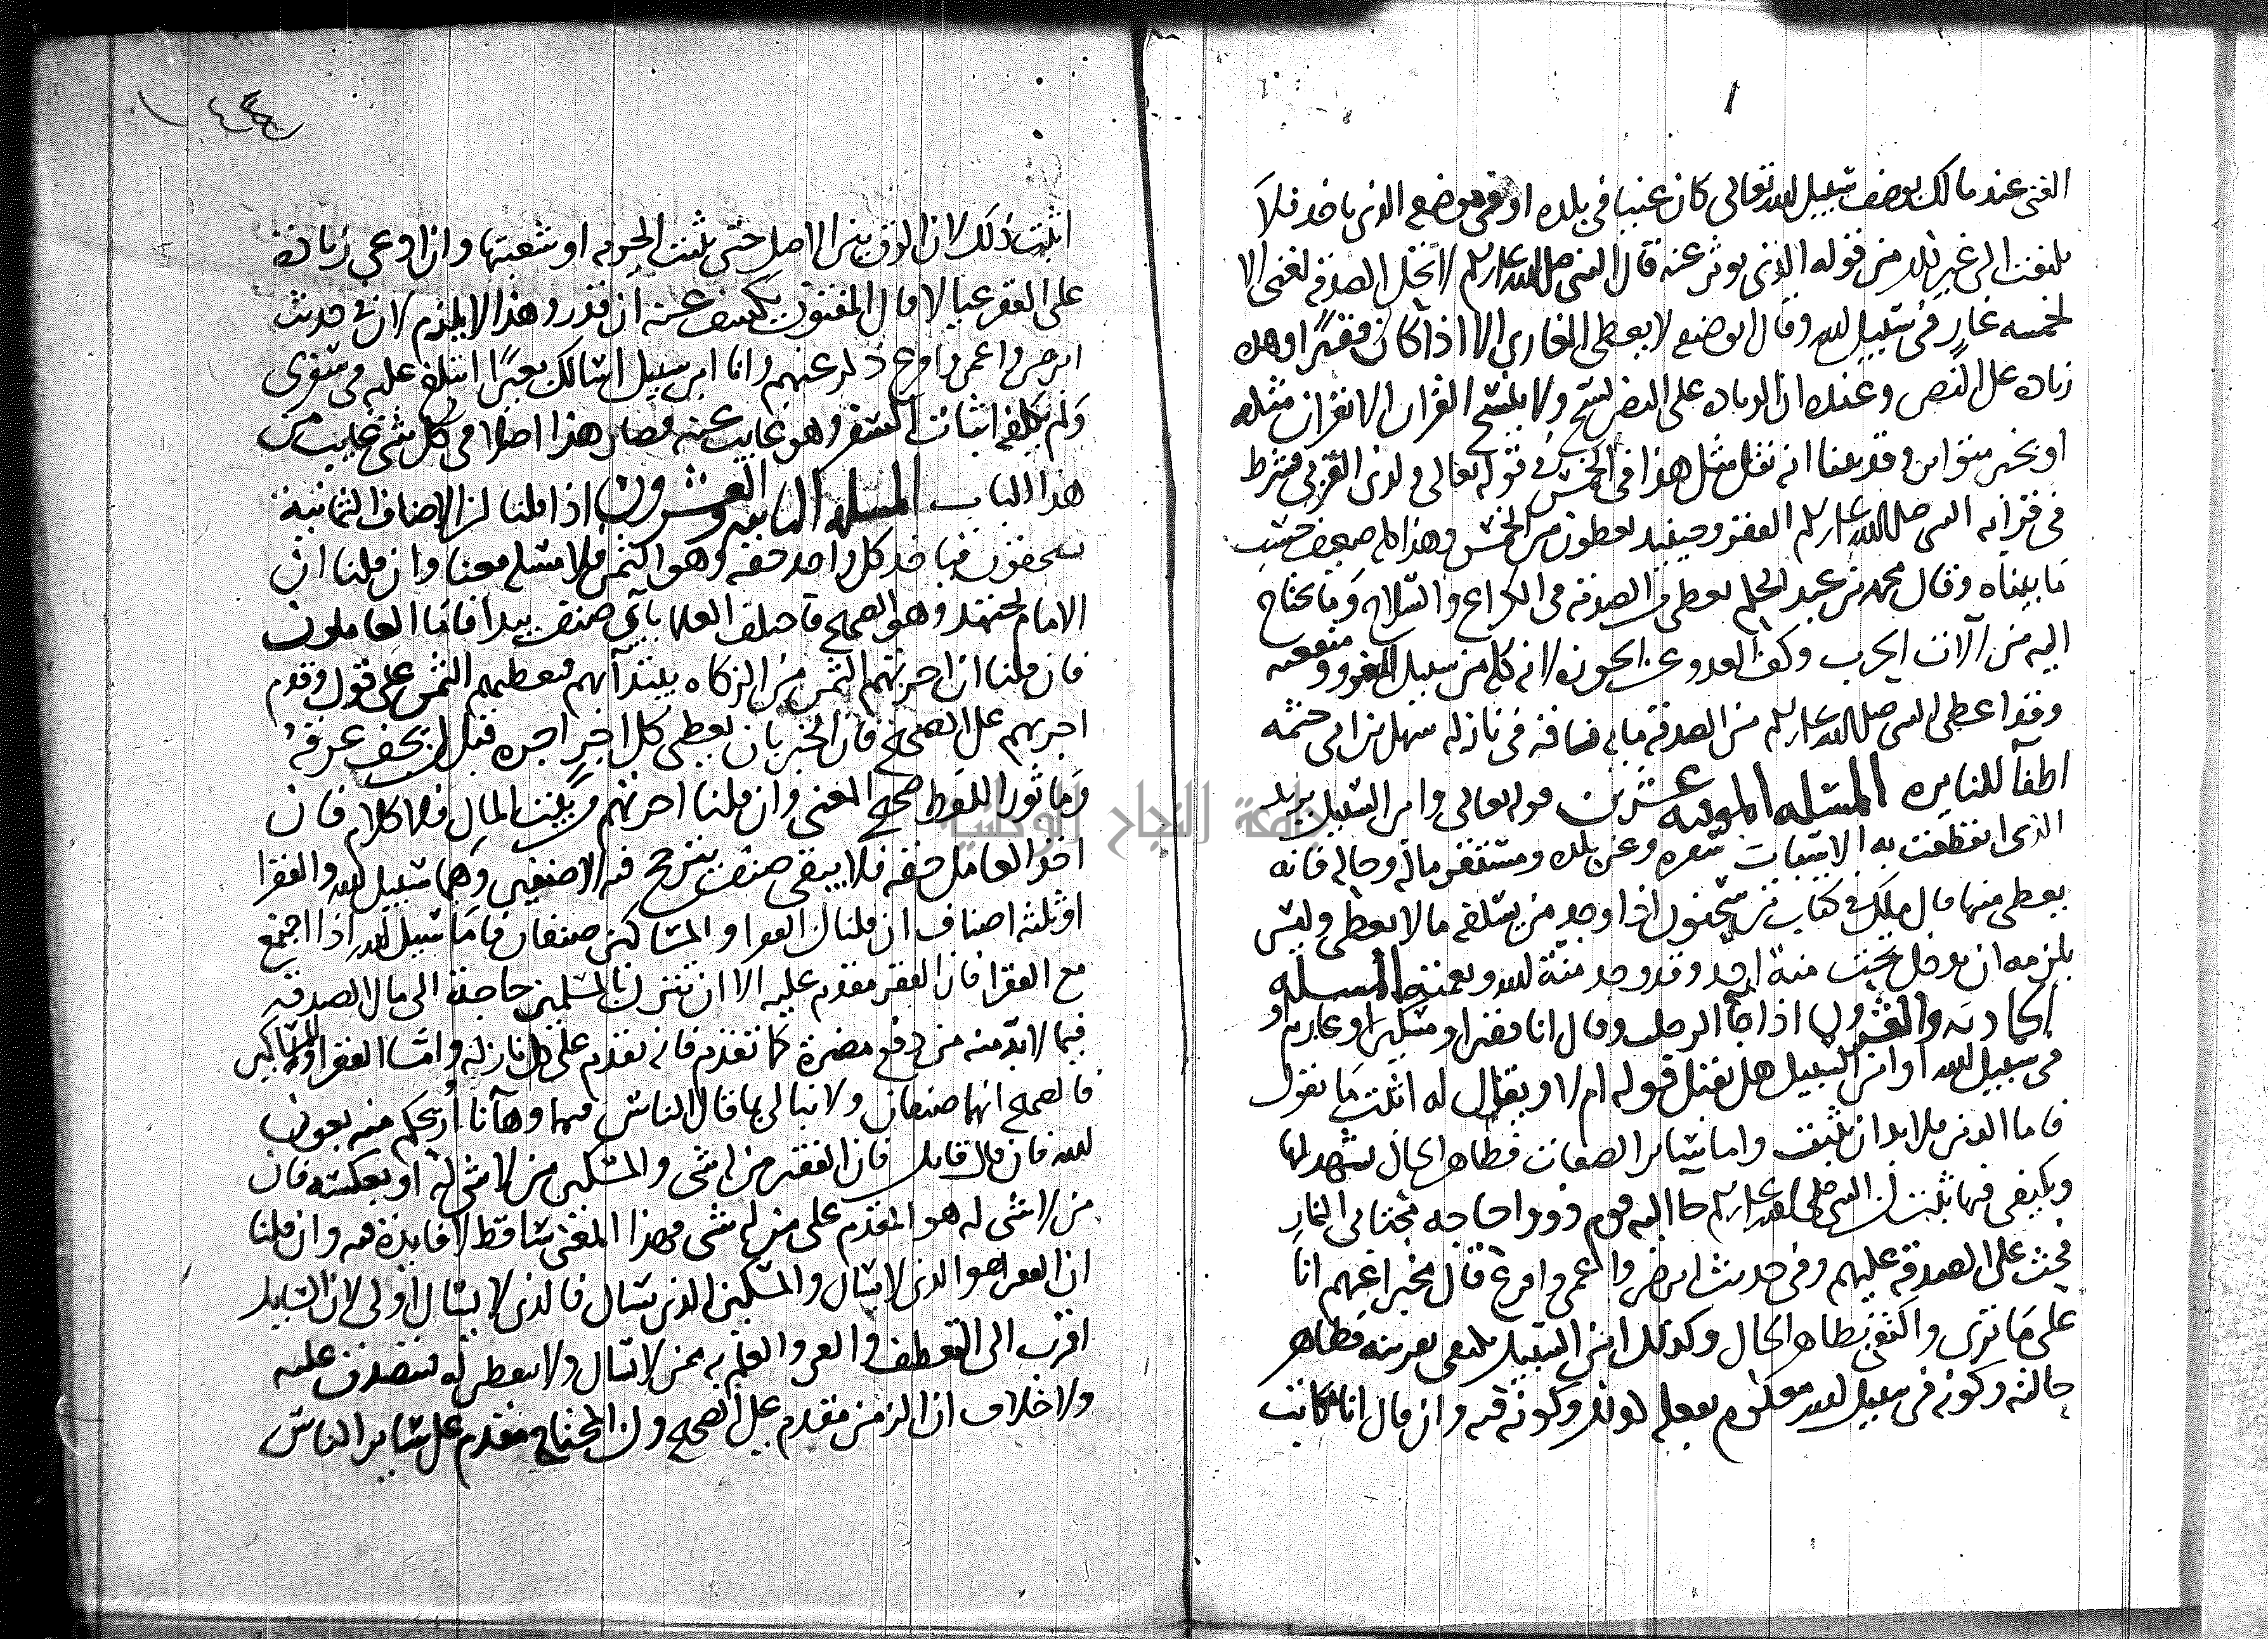 الغني عند مالك بوصف سبيل الله تعالى كان غنيا في بلده او في موضعه الذي ياخذ فلا
يلتفت الى غير ذلك من قوله الذي يوثر عنه قال النبي صلى الله عليه وسلم لا تحل الصدقة لغني الا
لخمسه غاز في سبيل الله وقال ابو ضيفه لا يعطى الغازي الا اذا كان فقيرا وهذه
زياده على النص وعنده ان الزياده على النص نسخ ولا ينسخ القران الا بقران مثله
او بخبر متواتر وقد بينا انه نقل مثل هذا في الخمس في قوله تعالى ولذي القربى فشرط
في قرابه النبي صلى الله عليه وسلم الفقر وحينئذ يعطون من الخمس وهذا كله ضعيف حسب
ما بيناه وقال محمد بن عبد الحكم يعطى من الصدقة في الكراع والسلاح وما يحتاج
اليه من آلات الحرب وكف العدو عن الحوزة لانه كله من سبيل الغزو ومنفعته
وقد اعطى النبي صلى الله عليه وسلم من الصدقة مايه ناقة في نازلة سهل بن ابي حثمه
اطفآ للنايره المسله الموفيه عشرين قوله تعالى وابن السبيل يريد
الذي انقطعت به الاسباب في سفره وعن بلده ومستقر ماله وحاله فانه
يعطى منها قال مالك في كتاب بن سحنون اذا وجد من يسلفه مالا يعطى وليس
يلزمه ان يدخل تحت منة احد وقد وجد منة الله ونعمته المسله
الحاديه والعشرون اذا جآ الرجل وقال انا فقير او مسكين او غارم او
في سبيل الله او ابن السبيل هل يقبل قوله ام لا او يقال له اثبت ما تقول
فاما الدين فلا بد ان يثبت واما سائر الصفات فظاهر الحال يشهد لها
ويكتفى فيها ثبت ان النبي صلى الله عليه وسلم جا اليه قوم ذووا حاجه مجتابي النمار
فحث على الصدقة عليهم وفي حديث ابرص واعمى واقرع قال مخبرا عنهم انا
على ما ترى واكتفى بظاهر الحال وكذلك ابن السبيل يكتفى بغربته فظاهر
حالته وكونه في سبيل الله معلوم بفعله لذلك وكونه فيه وان قال انا مكاتب
اثبت ذلك لان الرق بين الاصل حتى تثبت الحريه او شعبتها وان ادعى زيادة
على الفقر عيالا قال المفتون يكشف عنه ان قدر وهذا لا يلزم لان في حديث
ابرص واعمى واقرع ذكر عنهم وانا ابن سبيل اسالك بعيرا اتبلغ عليه في سفري
ولم يكلفه اثبات السفر وهو غايب عنه فصار هذا اصلا في كل شي غايب من
هذا الباب المسله الثانيه والعشرون اذا قلنا ان الاصناف الثمانية
يستحقون فياخذ كل واحد حقه وهو الثمن فلا مسله معنا وان قلنا ان
الامام يجتهد وهو الصحيح فاختلف العلما باي صنف يبدا فاما العاملون
فان قلنا ان اجرتهم الثمن من الزكاه يبتدآ بهم فنعطيهم الثمن على قول وقدم
اجرهم على الصحيح فان الخبر بان يعطى كل اجير اجره قبل ان يجف عرقه
وما ثور اللفظ صحيح المعنى وان قلنا اجرتهم في بيت المال فلا كلام فان
اخذ العامل حقه فلا يبقى صنف يترجح فيه الا صنفين وهما سبيل الله والفقرا
او ثلثه اصناف ان قلنا ان الفقرا والمساكين صنفان فاما سبيل الله اذا اجتمع
مع الفقرا فان الفقر مقدم عليه الا ان تنزل بالمسلمين حاجة الى مال الصدقه
فيما لا بد منه من دفع مضرة كما تقدم فانه تقدم على كل نازله واما الفقرا والمساكين
فالصحيح انهما صنفان ولا نبالي بما قال الناس فيهما وهآنا اريحكم منه بعون
الله فان قال قايل فان الفقير من له شي والمسكين من لا شي له او بعكسه فان
من لا شي له هو المقدم على من له شي فهذا المعنى ساقط لا فايدة فيه وان قلنا
ان الفقر هو الذي لا يسال والمسكين الذي يسال فالذي لا يسال اولى لان السايل
اقرب الى التفطن والعلم به ممن لا يسال ولا يفطن له فيتصدق عليه
ولا خلاف ان الزمن مقدم على الصحيح وان المحتاج مقدم على سائر الناس
جامعة النجاح الوطنية